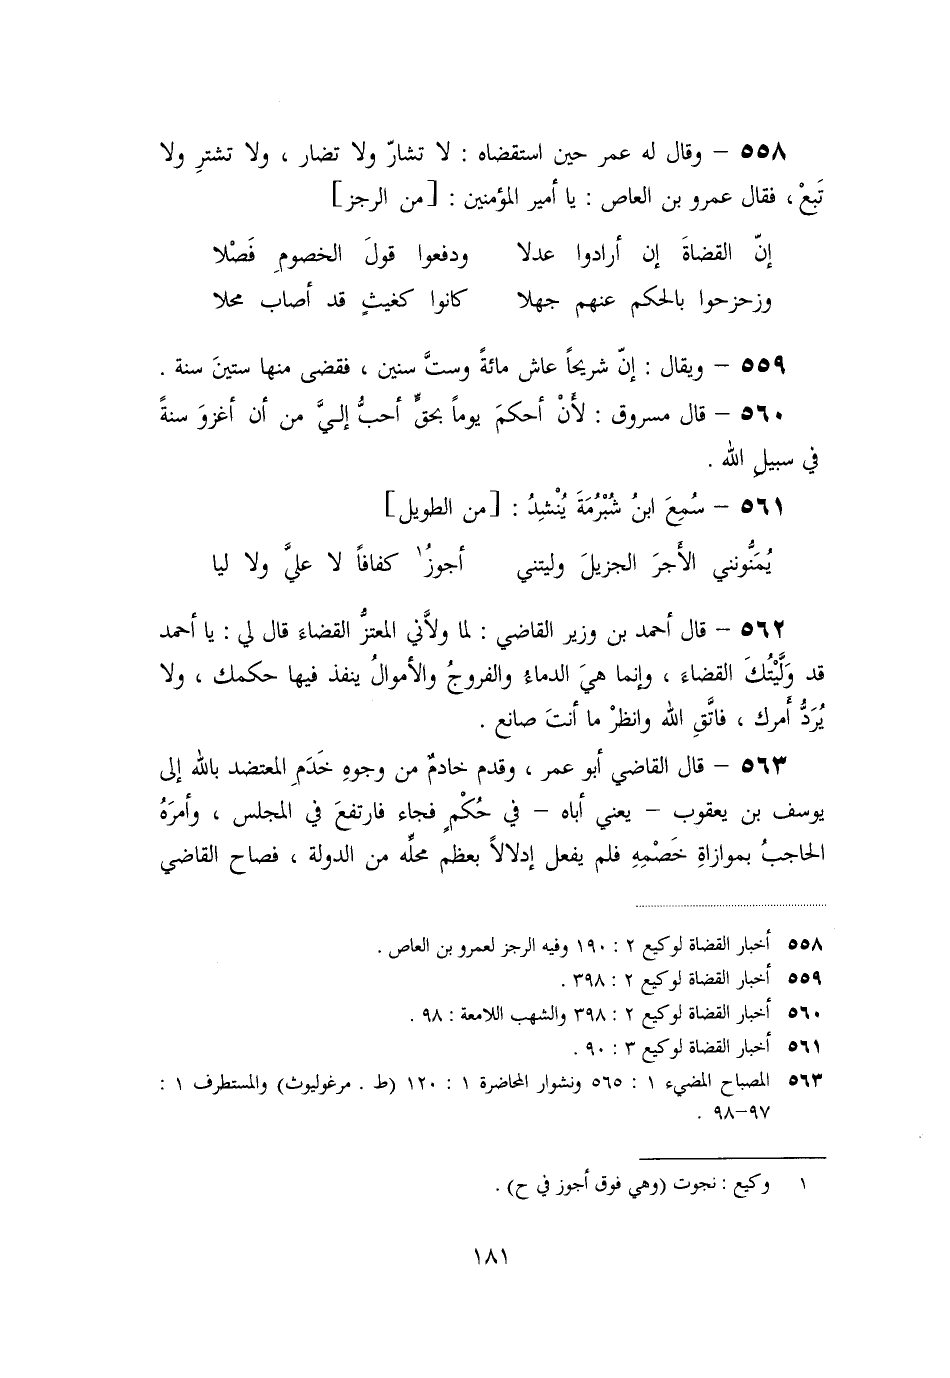 ٥٥٨ – وقال له عمر حين استقضاه : لا تشارّ ولا تضار ، ولا تشترِ ولا
تَبِعْ ، فقال عمرو بن العاص : يا أمير المؤمنين : [من الرجز]
إنّ القضاةَ إن أرادوا عدلا ودفعوا قولَ الخصومِ فَصْلا
وزحزحوا بالحكم عنهم جهلا كانوا كغيثٍ قد أصاب محلا
٥٥٩ – ويقال : إنّ شريحاً عاش مائةً وستَّ سنين ، فقضى منها ستينَ سنة .
٥٦٠ – قال مسروق : لأَنْ أحكمَ يوماً بحقٍّ أحبُّ إليَّ من أن أغزوَ سنةً
في سبيلِ الله .
٥٦١ – سُمِعَ ابنُ شُبْرُمَةَ يُنْشِدُ : [من الطويل]
يُمَنُّونني الأَجرَ الجزيلَ وليتني أجوزُ١ كفافاً لا عليَّ ولا ليا
٥٦٢ – قال أحمد بن وزير القاضي : لما ولاَّني المعتزُّ القضاءَ قال لي : يا أحمد
قد وَلَّيْتُكَ القضاءَ ، وإنما هيَ الدماءُ والفروجُ والأموالُ ينفذ فيها حكمك ، ولا
يُرَدُّ أمرك ، فاتَّقِ الله وانظرْ ما أنتَ صانع .
٥٦٣ – قال القاضي أبو عمر ، وقدم خادمٌ من وجوهِ خَدَمِ المعتضد بالله إلى
يوسف بن يعقوب – يعني أباه – في حُكْمٍ فجاء فارتفعَ في المجلس ، وأمرَهُ
الحاجبُ بموازاةِ خَصْمِهِ فلم يفعل إدلالاً بعظم محلِّه من الدولة ، فصاح القاضي
٥٥٨ أخبار القضاة لوكيع ٢ : ١٩٠ وفيه الرجز لعمرو بن العاص .
٥٥٩ أخبار القضاة لوكيع ٢ : ٣٩٨ .
٥٦٠ أخبار القضاة لوكيع ٢ : ٣٩٨ والشهب اللامعة : ٩٨ .
٥٦١ أخبار القضاة لوكيع ٣ : ٩٠ .
٥٦٣ المصباح المضيء ١ : ٥٦٥ ونشوار المحاضرة ١ : ١٢٠ (ط . مرغوليوث) والمستطرف ١ :
٩٧–٩٨ .
١ وكيع : نجوت (وهي فوق أجوز في ح) .
١٨١